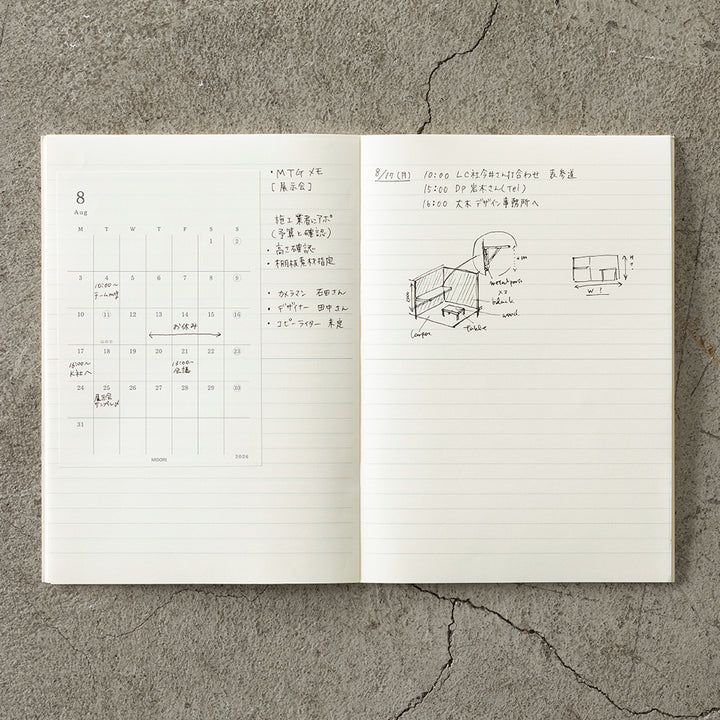 8
Aug
M T W T F S S
1 2
3 4 5 6 7 8 9
10:00〜
チームmtg
10 11 12 13 14 15 16
お休み
山の日
17 18 19 20 21 22 23
K社へ
会議
24 25 26 27 28 29 30
展示会
31
MIDORI
2026
・MTGメモ
[展示会]
施工業者にアポ
(予算と確認)
・高さ確認
・棚板素材指定
・カメラマン 石田さん
・デザイナー 田中さん
・コピーライター 未定
8/17(月) 10:00 LC社今井さん打合わせ 表参道
15:00 DP 岩木さん(Tel)
16:00 大木デザイン事務所へ
metal parts
x2
black
wood
table
W ?
H
?